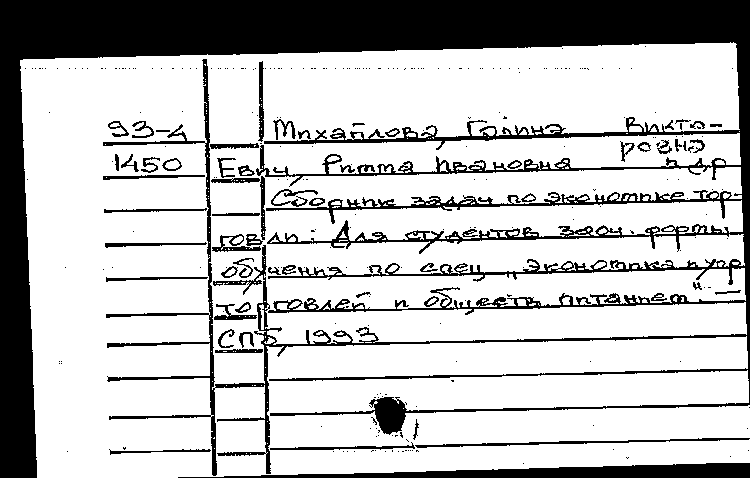 93-4 Михайлова, Галина Викто-
ровна
1450 Евич, Римма Ивановна и др
Сборник задач по экономике тор-
говли: Для студентов заоч. формы
обучения по спец „Экономика и упр
торговлей и обществ. питанием". —
СПб, 1993